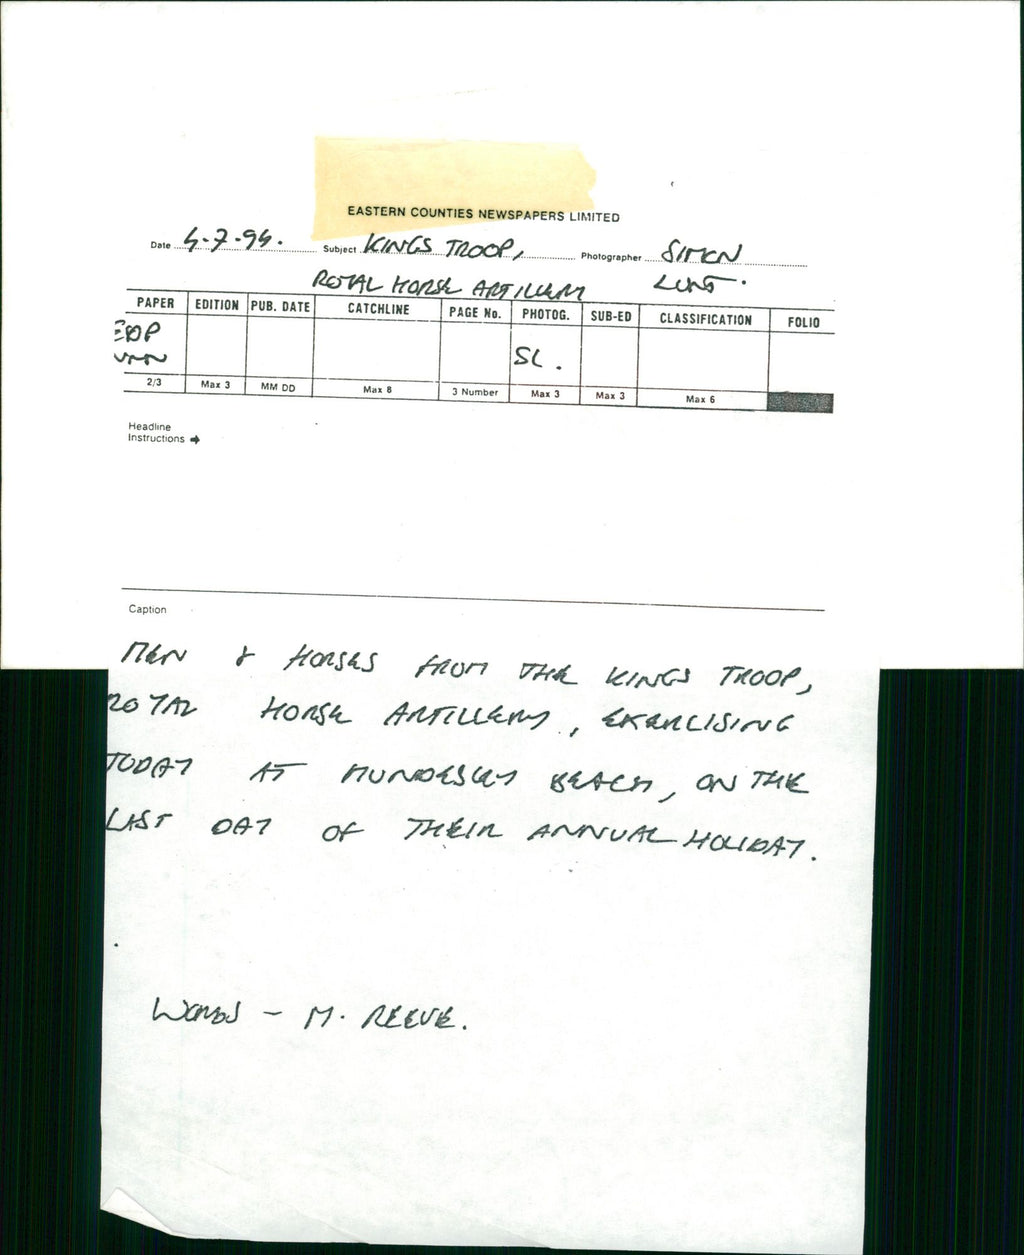 EASTERN COUNTIES NEWSPAPERS LIMITED
Date Subject KINGS TROOP, Photographer SIMON
ROYAL HORSE ARTILLERY
PAPER EDITION PUB. DATE CATCHLINE PAGE No. PHOTOG. SUB-ED CLASSIFICATION FOLIO
EDP
SL.
2/3 Max 3 MM DD Max 8 3 Number Max 3 Max 3 Max 6
Headline
Instructions →
Caption
MEN & HORSES FROM THE KINGS TROOP,
ROYAL HORSE ARTILLERY, EXERCISING
TODAY AT MUNDESLEY BEACH, ON THE
LAST DAY OF THEIR ANNUAL HOLIDAY.
WORDS - M. REEVE.